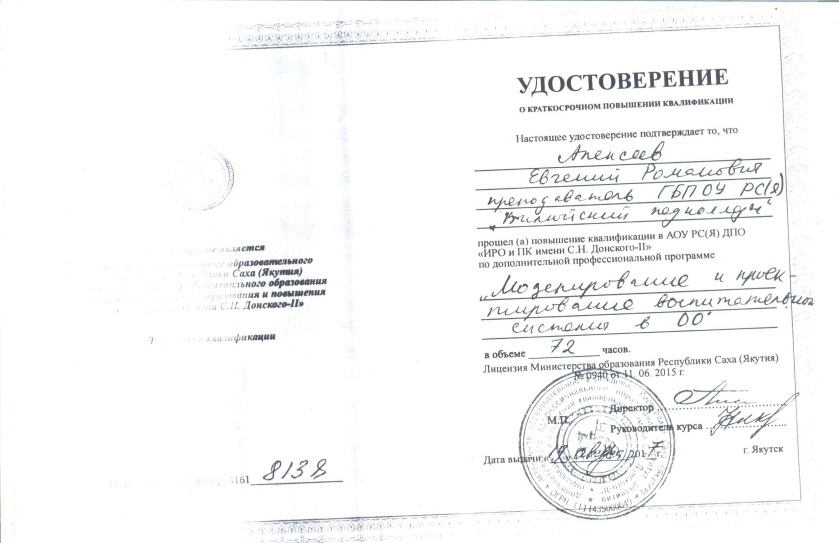 является
образовательного
Саха (Якутия)
образования
и повышения
С.Н. Донского-II»
квалификации
8138
УДОСТОВЕРЕНИЕ
О КРАТКОСРОЧНОМ ПОВЫШЕНИИ КВАЛИФИКАЦИИ
Настоящее удостоверение подтверждает то, что
Алексеев
Евгений Романович
преподаватель ГБПОУ РС(Я)
"Вилюйский педколледж"
прошел (а) повышение квалификации в АОУ РС(Я) ДПО
«ИРО и ПК имени С.Н. Донского-II»
по дополнительной профессиональной программе
„Моделирование и проек-
тирование воспитательной
системы в ОО"
в объеме 72 часов.
Лицензия Министерства образования Республики Саха (Якутия)
№ 0940 от 11. 06. 2015 г.
М.П.
Директор
Руководитель курса
Дата выдачи « 2017 г.
г. Якутск